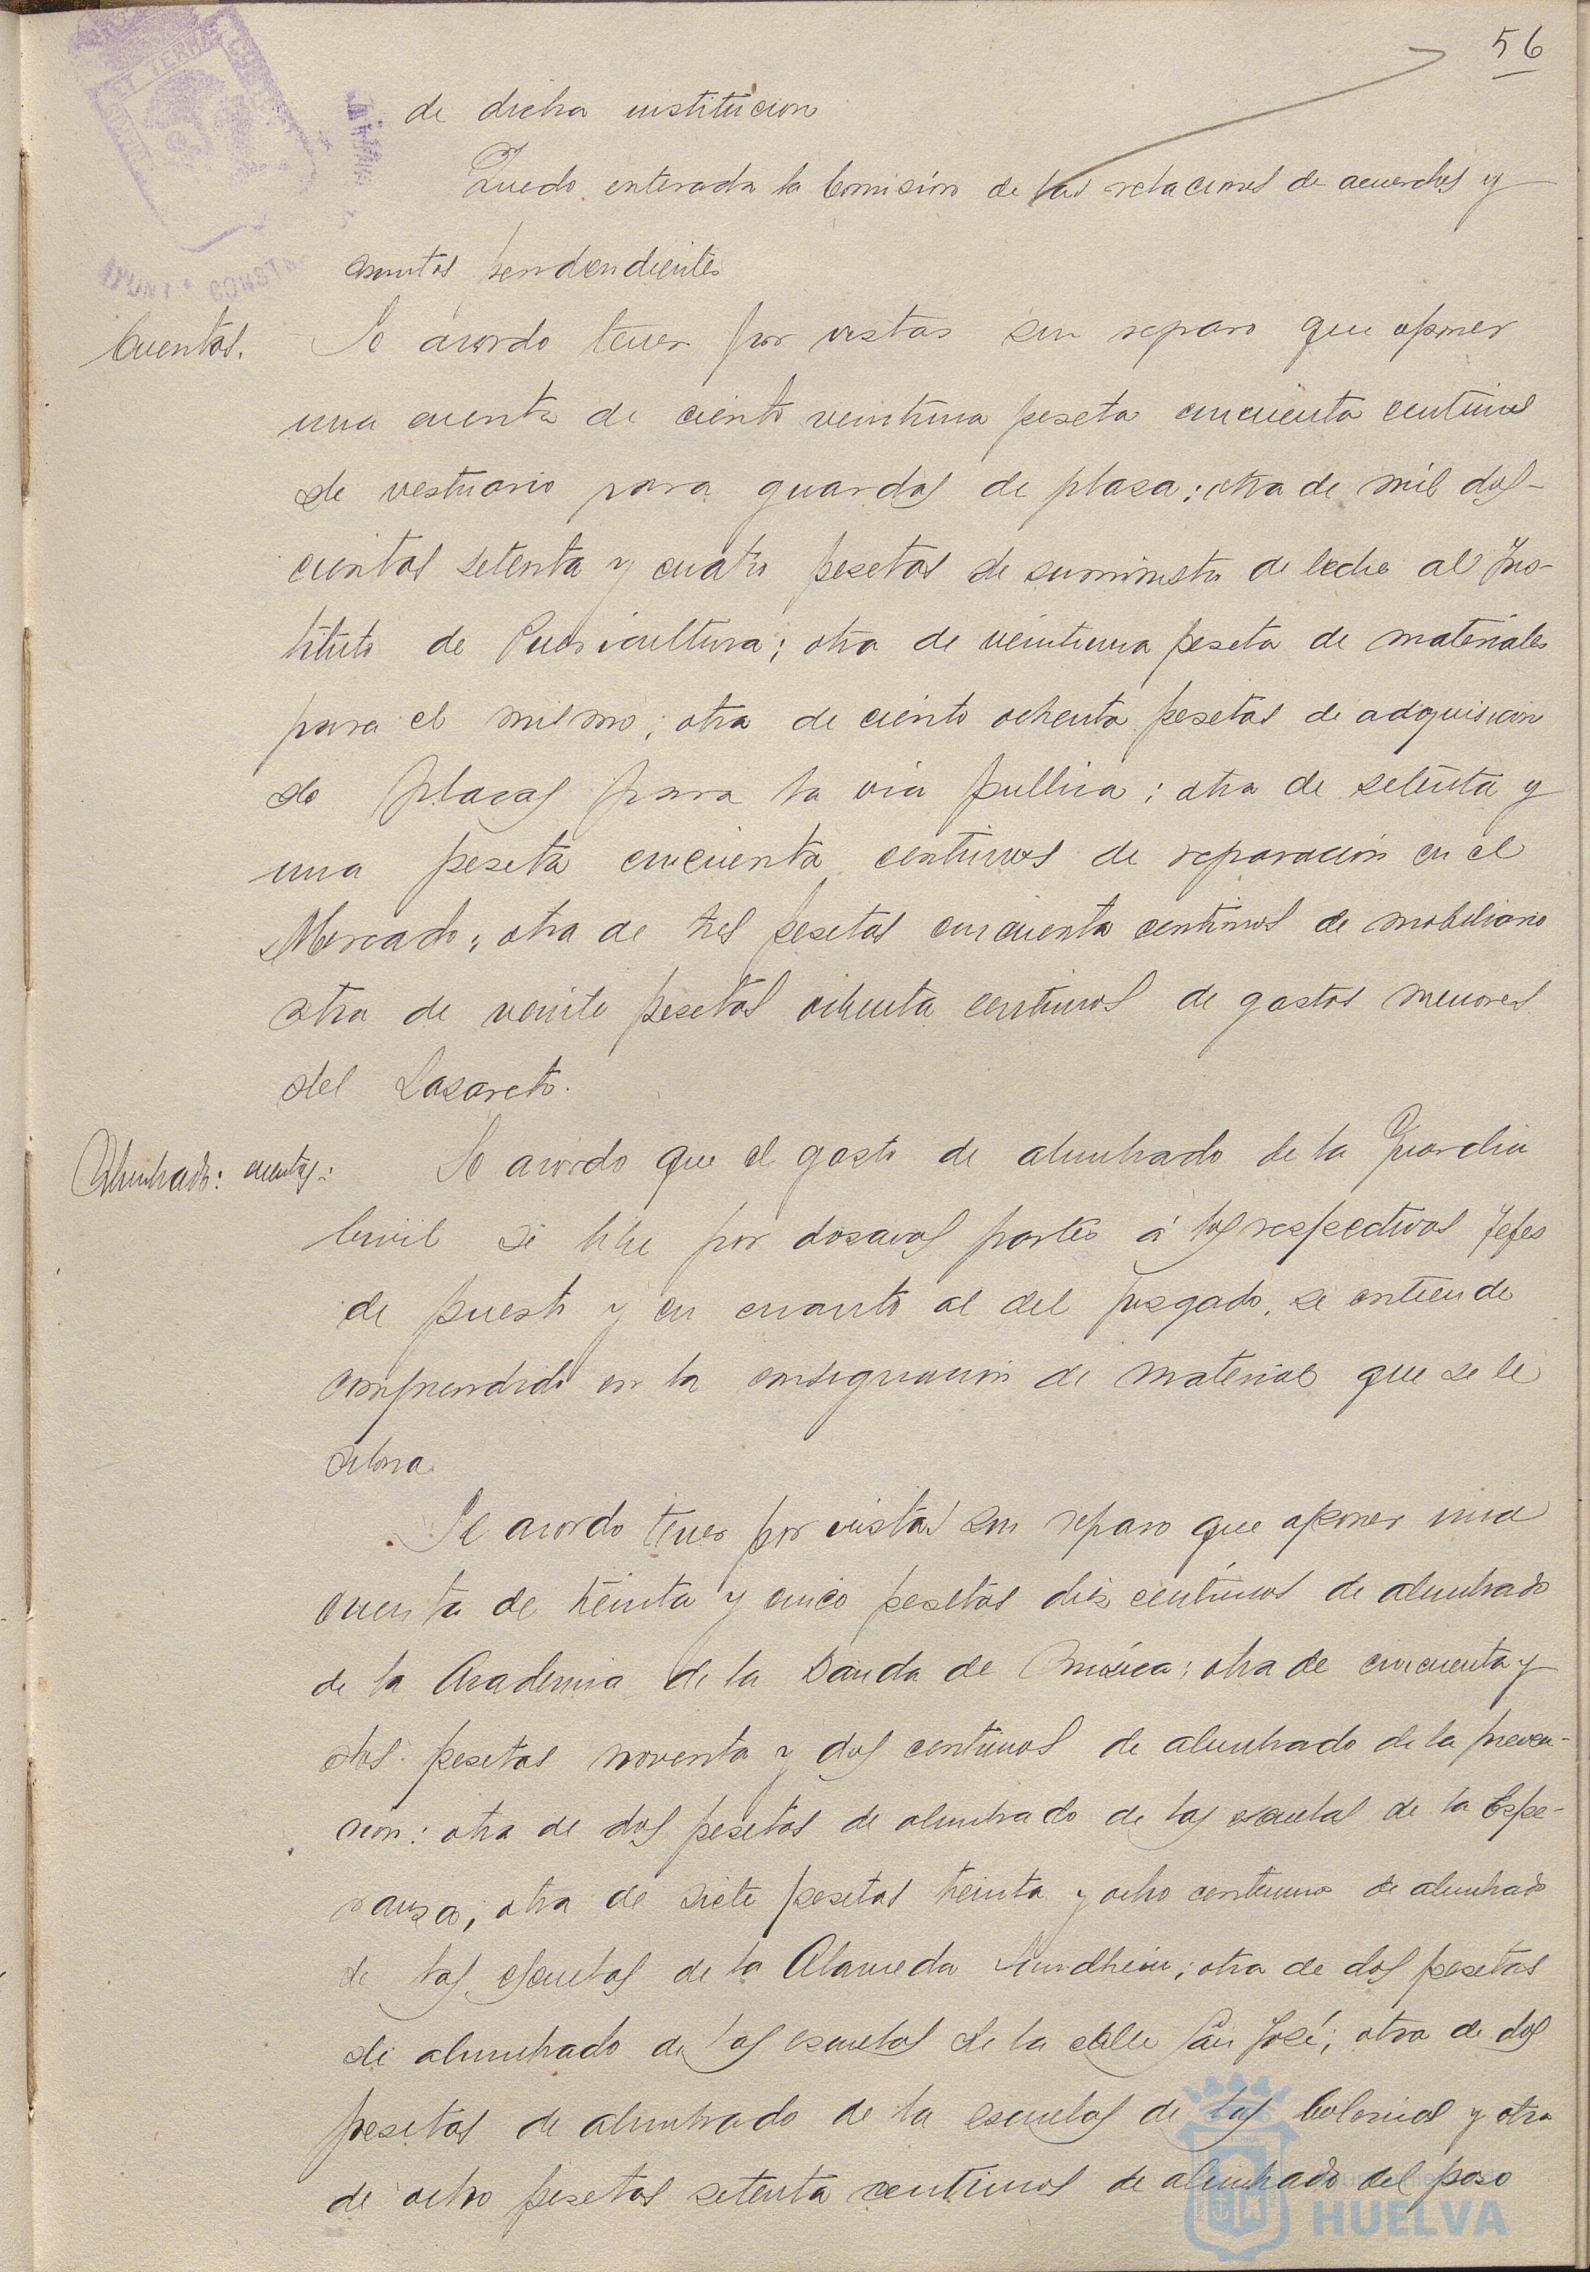 56
de dicha institucion
Quedo enterada la Comisión de las relaciones de acuerdos y
asuntos pendendientes
Cuentas. Se acordo tener por vistas sin reparo que oponer
una cuenta de ciento veintiuna peseta cincuenta centimos
de vestuario para guardas de plaza; otra de mil dos-
cientas setenta y cuatro pesetas de suministro de leche al Ins-
tituto de Puericultura; otra de veintiuna peseta de materiales
para el mismo; otra de ciento ochenta pesetas de adquisicion
de placas para la via publica; otra de setenta y
una peseta cincuenta centimos de reparación en el
Mercado; otra de tres pesetas cincuenta centimos de mobiliario
otra de veinte pesetas ochenta centimos de gastos menores
del Lazareto.
Alumbrado: cuentas: Se acordo que el gasto de alumbrado de la Guardia
Civil se libre por dozavas partes á los respectivos Jefes
de puesto y en cuanto al del juzgado, se entiende
comprendido en la consignacion de material que se le
abona.
Se acordo tener por vistas sin reparo que oponer una
cuenta de treinta y cinco pesetas diez centimos de alumbrado
de la Academia de la Banda de Música; otra de cincuenta y
dos pesetas noventa y dos centimos de alumbrado de la preven-
cion: otra de dos pesetas de alumbrado de las escuelas de la Espe-
ranza; otra de siete pesetas treinta y ocho centimos de alumbrado
de las escuelas de la Alameda Sundheim; otra de dos pesetas
de alumbrado de las escuelas de la calle San José; otra de dos
pesetas de alumbrado de la escuelas de las Colonias y otra
de ocho pesetas setenta centimos de alumbrado del paso
HUELVA